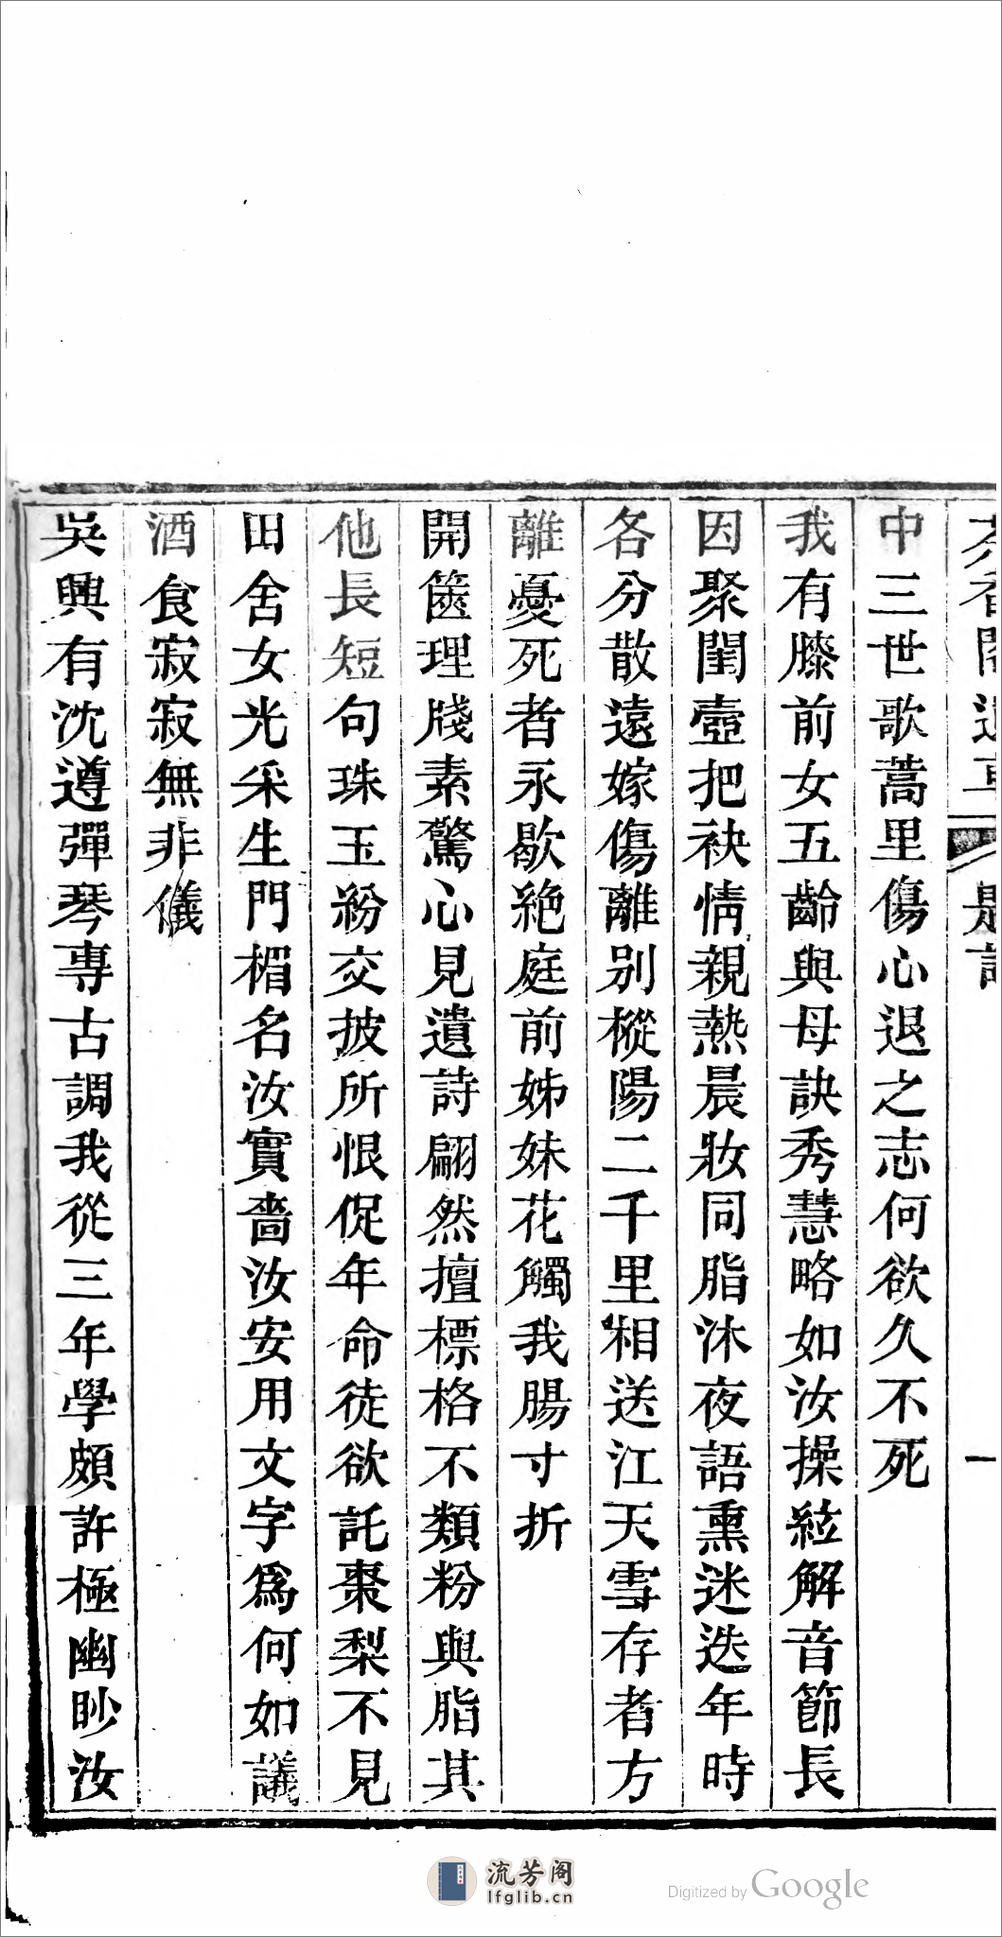 中三世歌蒿里傷心退之志何欲久不死
我有膝前女五齡與母訣秀慧略如汝操絃解音節長
因聚閨壼把袂情親熱晨妝同脂沐夜語熏迷迭年時
各分散遠嫁傷離別樅陽二千里相送江天雪存者方
離憂死者永歇絕庭前姊妹花觸我腸寸折
開篋理牋素驚心見遺詩翩然擅標格不類粉與脂其
他長短句珠玉紛交披所恨促年命徒欲託棗梨不見
田舍女光采生門楣名汝實嗇汝安用文字爲何如議
酒食寂寂無非儀
吳興有沈遵彈琴專古調我從三年學頗許極幽眇汝
流芳阁
lfglib.cn
Digitized by Google